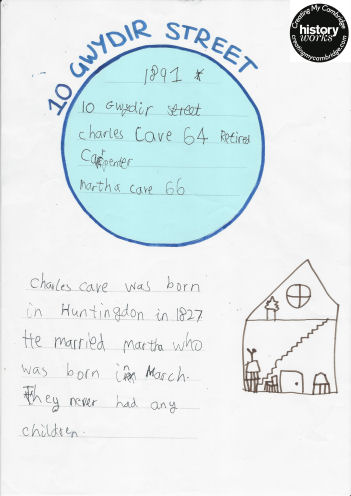 Creating My Cambridge
history
works
creatingmycambridge.com
10 GWYDIR STREET
1891 *
10 Gwydir street
charles Cave 64 Retired
Carpenter
Martha cave 66
charles cave was born
in Huntingdon in 1827
He married Martha who
was born in March.
They never had any
children.